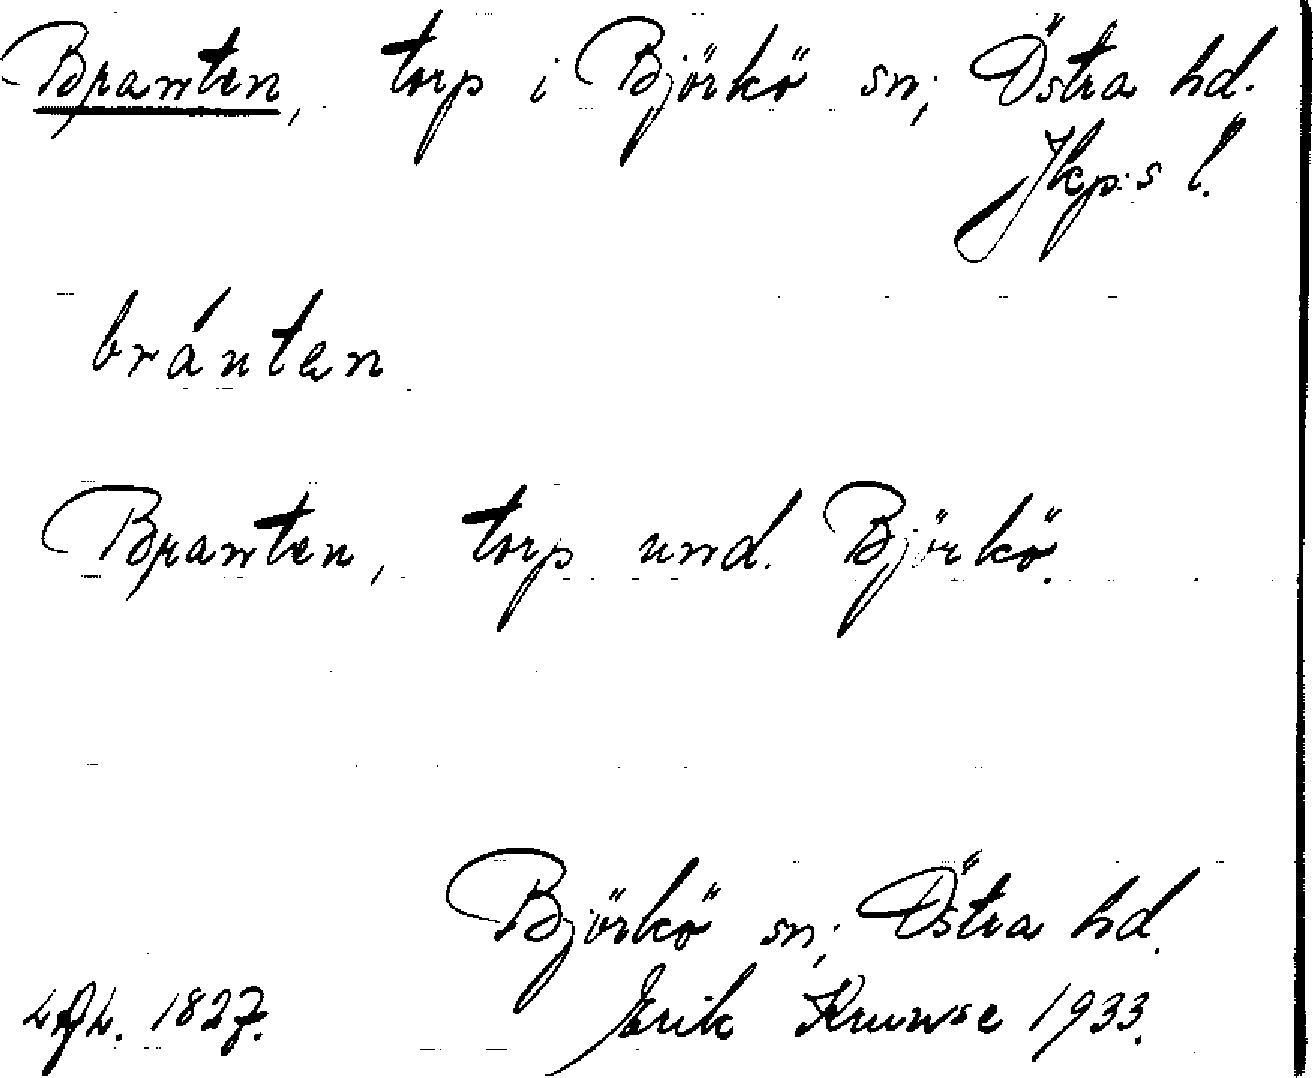 Branten, torp i Björkö sn; Östra hd.
Jkp:s l.
bránten
Branten, torp und. Björkö.
Björkö sn; Östra hd.
1827. Erik Kruuse 1933.